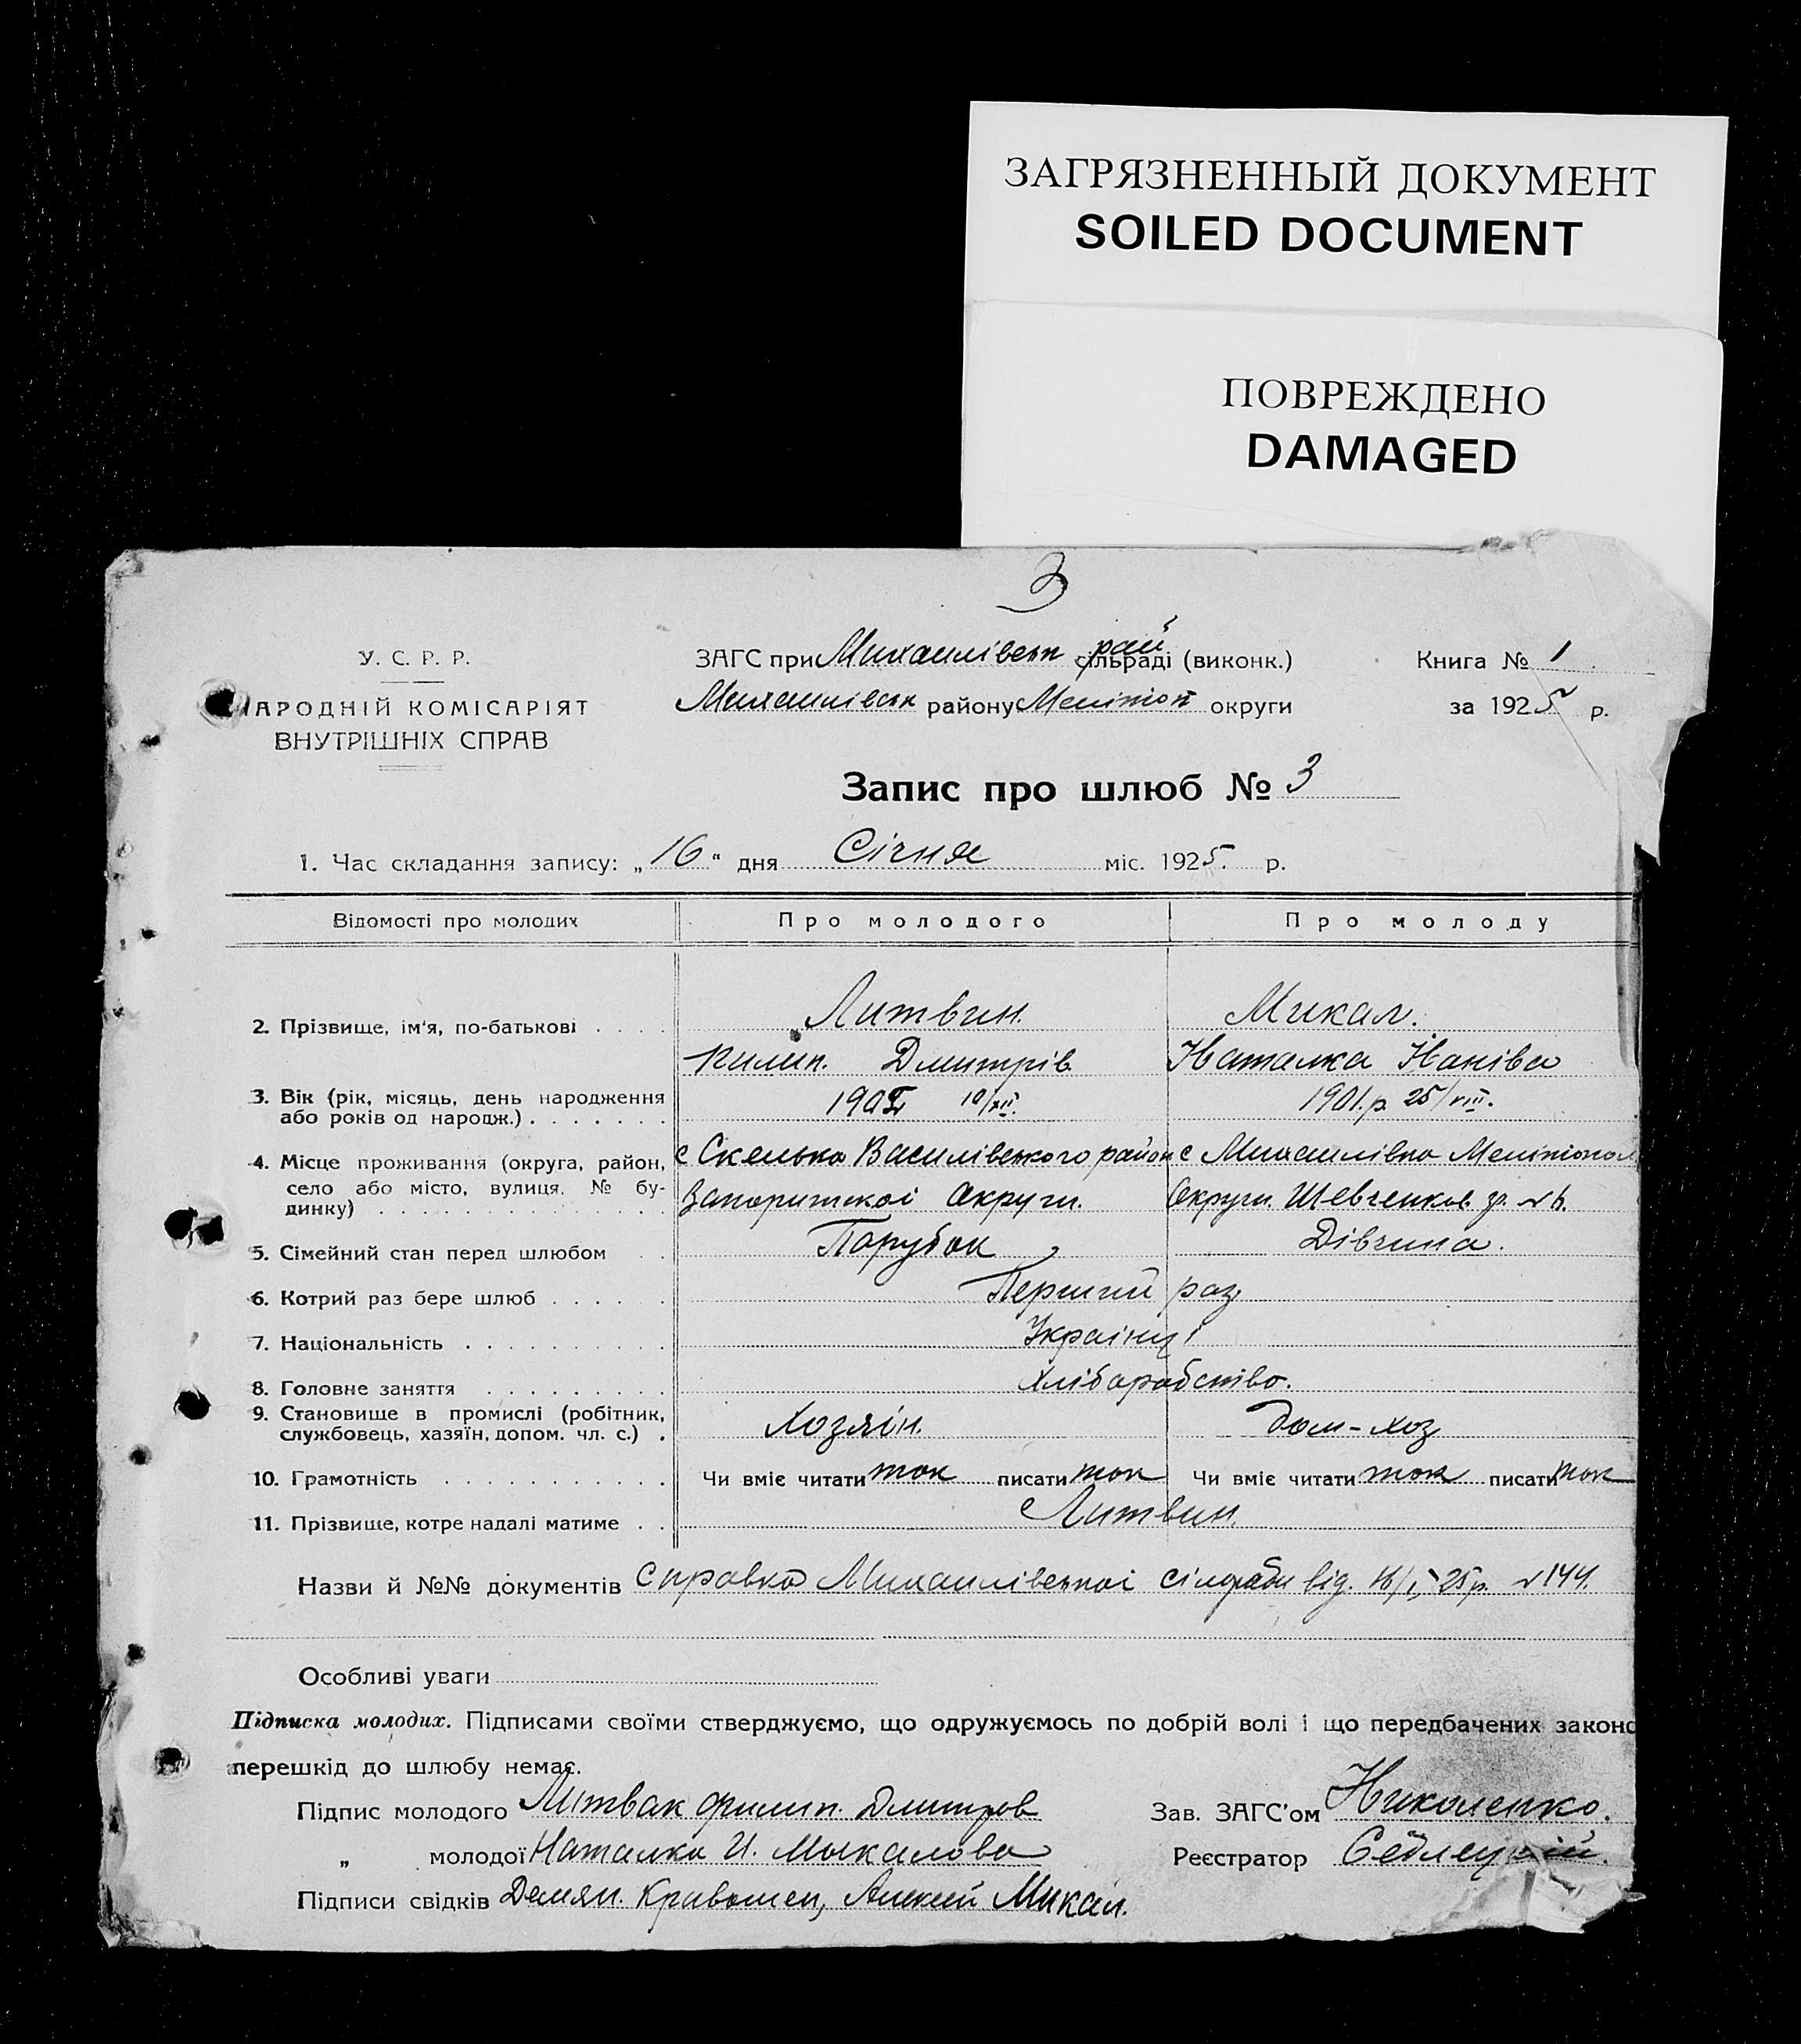 ЗАГРЯЗНЕННЫЙ ДОКУМЕНТ
SOILED DOCUMENT
ПОВРЕЖДЕНО
DAMAGED
3
У. С. Р. Р.
АРОДНІЙ КОМІСАРІЯТ
ВНУТРІШНІХ СПРАВ
ЗАГС при Михаилівськ рай сільраді (виконк.)
Михаилівськ району Мелітоп округи
Книга № 1
за 1925 р.
Запис про шлюб № 3
1. Час складання запису: „16“ дня Січня міс. 1925. р.
Відомості про молодих Про молодого Про молоду
2. Прізвище, ім'я, по-батькові Литвин. Микал.
Дмитрів Наталка
3. Вік (рік, місяць, день народження 10/XII. 1901.р. 25/VIII.
або років од народж.)
4. Місце проживання (округа, район, с Скелька Василівського район с Михаилівка Мелітопол
село або місто, вулиця, № бу- Запоризкої Округи. Округи. Шевченков.
динку)
5. Сімейний стан перед шлюбом Парубок Дівчина.
6. Котрий раз бере шлюб Перший раз
7. Національність Українці
8. Головне заняття Хліборобство.
9. Становище в промислі (робітник, Хозяін. Дом-хоз
службовець, хазяїн, допом. чл. с.)
10. Грамотність Чи вміє читати так писати так Чи вміє читати так писати так
11. Прізвище, котре надалі матиме Литвин.
Назви й №№ документів Справка Михаилівської сільради від. 16/I-25р. № 144.
Особливі уваги
Підписка молодих. Підписами своїми стверджуємо, що одружуємось по добрій волі і що передбачених законо
перешкід до шлюбу немає.
Підпис молодого Литвак Филип. Дмитров
Зав. ЗАГС'ом Николенко.
„ молодої Наталка И. Мыкалова
Реєстратор Седлецкій.
Підписи свідків Демян. Кривошеи, Алексей Микал.